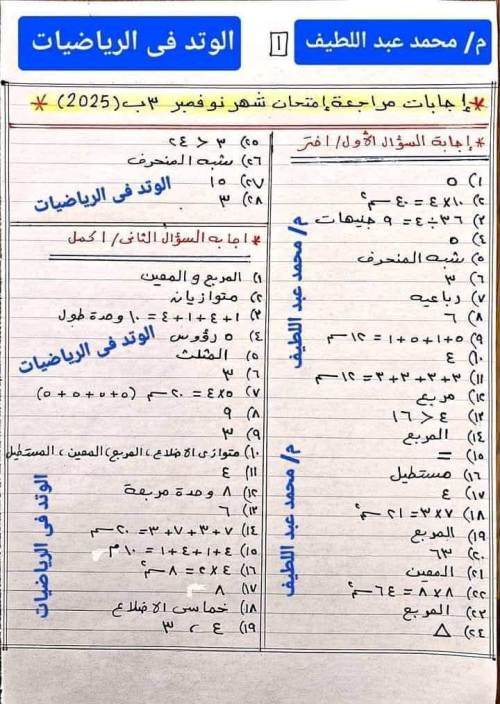 م/ محمد عبد اللطيف
١
الوتد فى الرياضيات
* إجابات مراجعة إمتحان شهر نوفمبر ٣ب (2025) *
* إجابة السؤال الأول / اختر
١) ٥
٢) ١٠ × ٤ = ٤٠ سم٢
٣) ٣٦ ÷ ٤ = ٩ جنيهات
٤) ٥
٥) شبه المنحرف
٦) ٣
٧) رباعيه
٨) ٦
٩) ٥ + ١ + ٥ + ١ = ١٢ سم
١٠) ٤
١١) ٣ + ٣ + ٣ + ٣ = ١٢ سم
١٢) مربع
١٣) ٤ > ١٦
١٤) المربع
١٥) =
١٦) مستطيل
١٧) ٤
١٨) ٧ × ٣ = ٢١ سم٢
١٩) المربع
٢٠) ٦٣
٢١) المعين
٢٢) ٨ × ٨ = ٦٤ سم٢
٢٣) المربع
٢٤) △
م/ محمد عبد اللطيف
م/ محمد عبد اللطيف
٢٥) ٣ > ٢٤
٢٦) شبه المنحرف
٢٧) ١٥
٢٨) ٣
الوتد فى الرياضيات
* اجابه السؤال الثانى / اكمل
١) المربع و المعين
٢) متوازيان
٣) ١ + ٤ + ١ + ٤ = ١٠ وحدة طول
٤) ٥ رؤوس
٥) المثلث
٦) ٣
٧) ٥ × ٤ = ٢٠ سم (٥ + ٥ + ٥ + ٥)
٨) ٩
٩) ٣
١٠) متوازى الاضلاع ، المربع ، المعين ، المستطيل
١١) ٤
١٢) ٨ وحدة مربعة
١٣) ٦
١٤) ٧ + ٣ + ٧ + ٣ = ٢٠ سم
١٥) ٤ + ١ + ٤ + ١ = ١٠ م
١٦) ٤ × ٢ = ٨ سم٢
١٧) ٨
١٨) خماسى الاضلاع
١٩) ٤ ، ٣
الوتد فى الرياضيات
الوتد فى الرياضيات